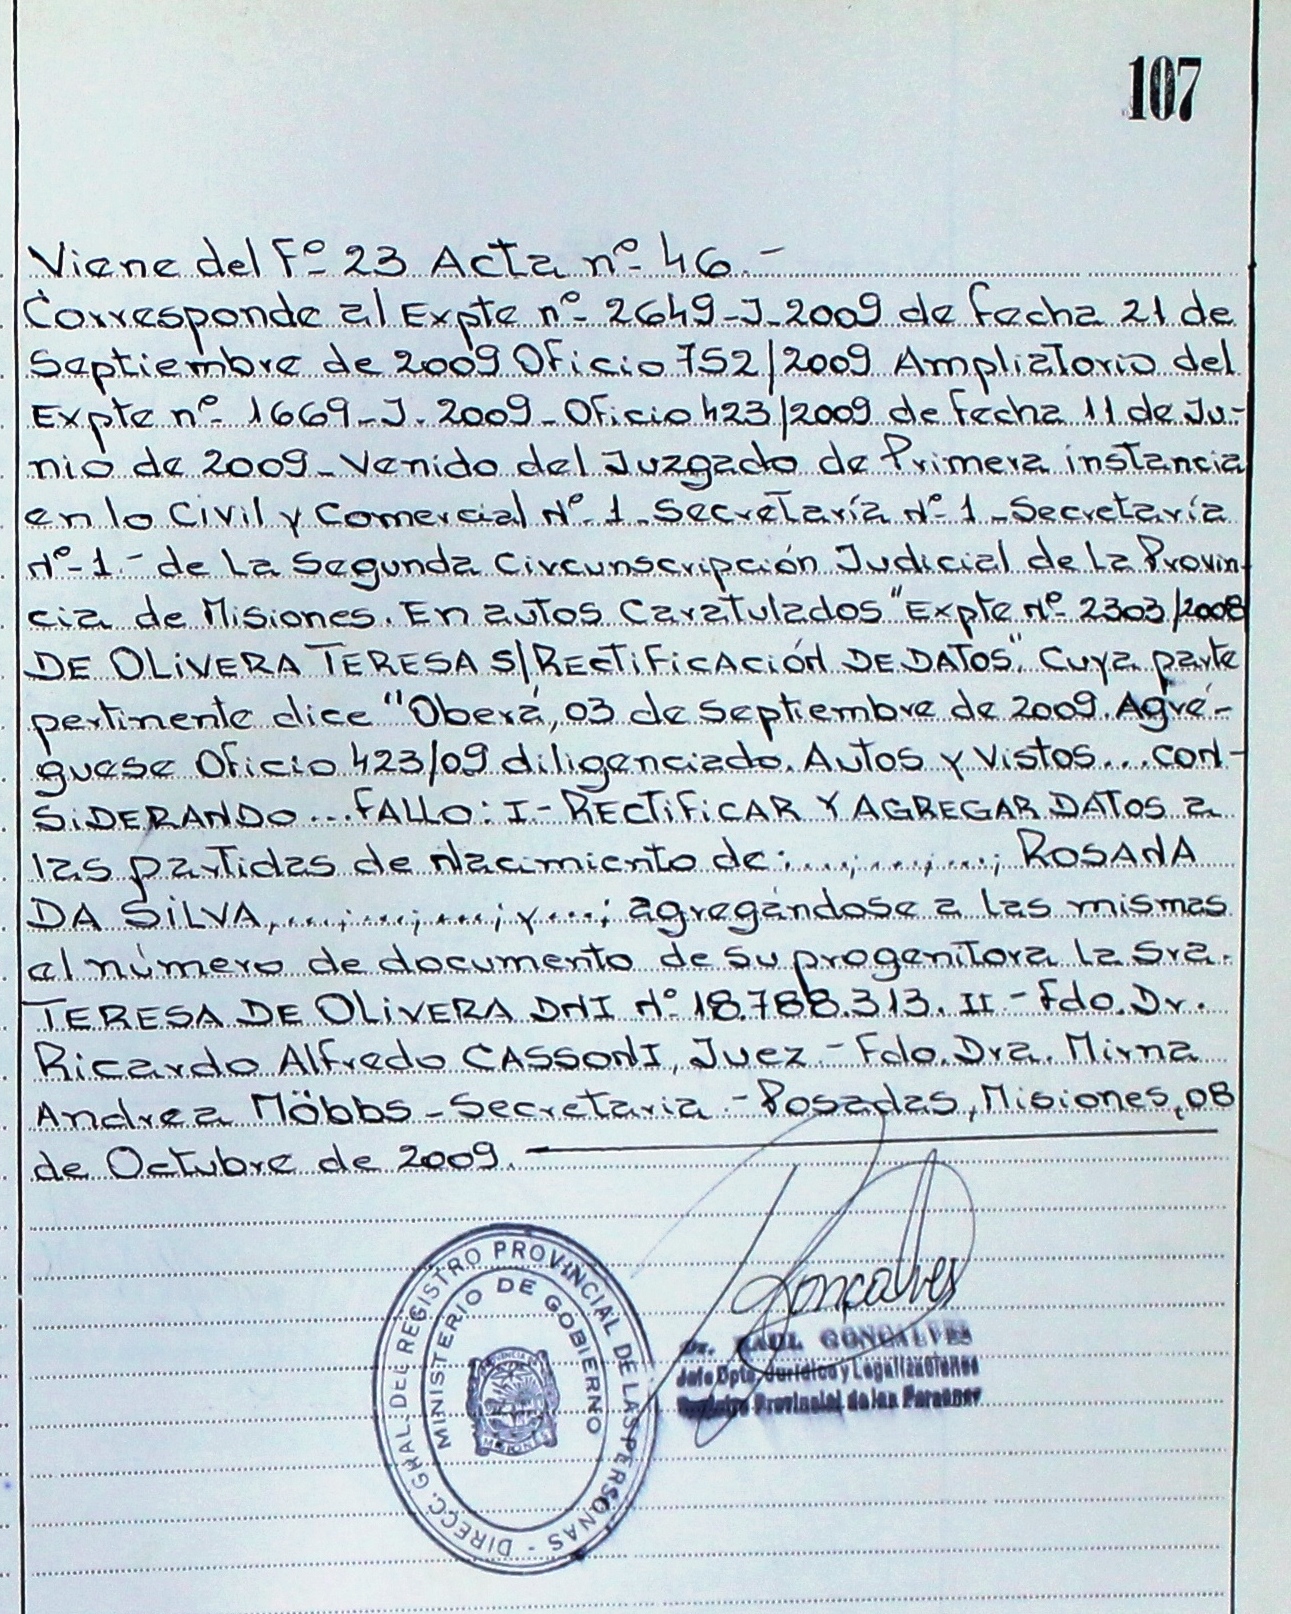 107
Viene del Fº 23 Acta nº 46.-
Corresponde al Expte nº 2649-J-2009 de fecha 21 de
Septiembre de 2009 Oficio 752/2009 Ampliatorio del
Expte nº 1669-J. 2009-Oficio 423/2009 de fecha 11 de Ju-
nio de 2009-Venido del Juzgado de Primera instancia
en lo Civil y Comercial Nº 1-Secretaría Nº 1-Secretaría
Nº 1.- de La Segunda Circunscripción Judicial de La Provin-
cia de Misiones. En autos Caratulados "Expte Nº 2303/2008
DE OLIVERA TERESA S/RECTIFICACIÓN DE DATOS". Cuya parte
pertinente dice "Oberá, 03 de Septiembre de 2009. Agré-
guese Oficio 423/09 diligenciado. Autos y Vistos...CON-
SIDERANDO...FALLO: I-RECTIFICAR Y AGREGAR DATOS a
las partidas de Nacimiento de:...;...;...; ROSANA
DA SILVA,...;...;...; y...; agregándose a las mismas
el número de documento de su progenitora la Sra.
TERESA DE OLIVERA DNI Nº 18.788.313. II-Fdo. Dr.
Ricardo Alfredo CASSONI, Juez-Fdo. Dra. Mirna
Andrea Möbbs-Secretaria-Posadas, Misiones, 08
de Octubre de 2009.
DIRECC. GRAL. DEL REGISTRO PROVINCIAL DE LAS PERSONAS -
MINISTERIO DE GOBIERNO
PROVINCIA DE
MISIONES
Goncalves
Dr. RAUL GONCALVES
Jefe Dpto. Jurídico y Legalizaciones
Registro Provincial de las Personas